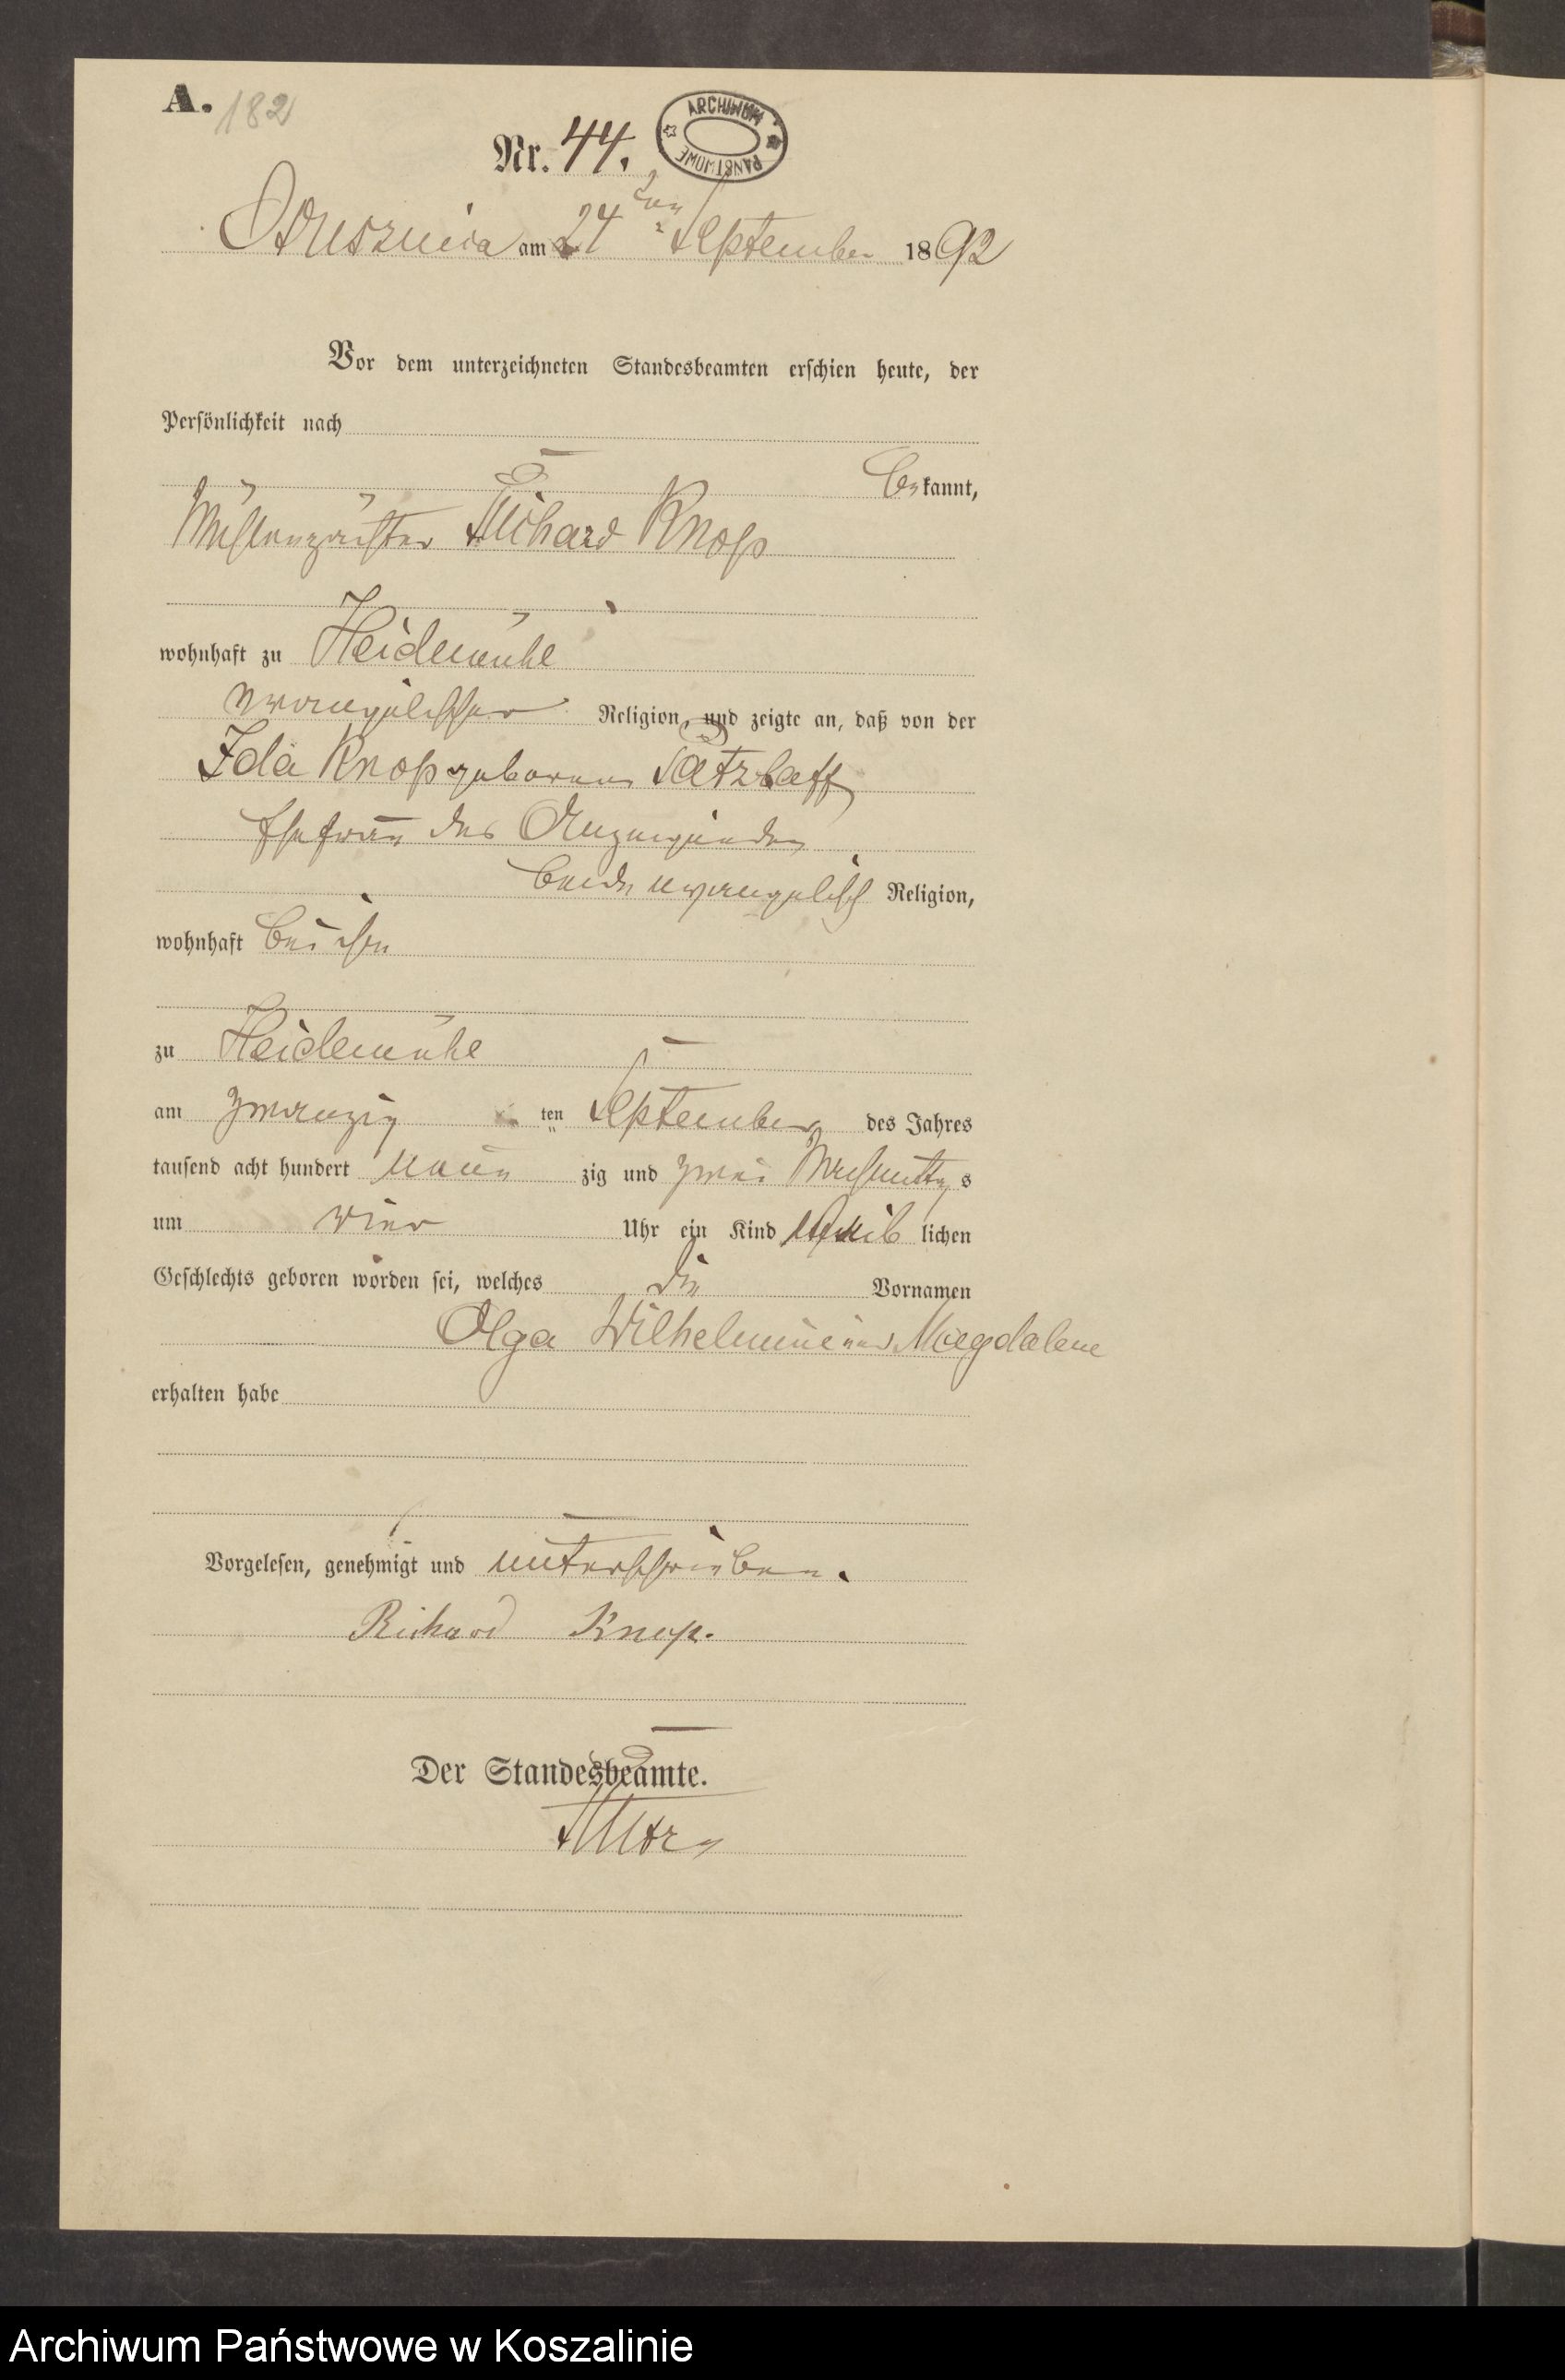 A. 182
Nr. 44.
ARCHIWUM PAŃSTWOWE
am 24ten September 1892
Vor dem unterzeichneten Standesbeamten erschien heute, der
Persönlichkeit nach
bekannt,
Mühlenpächter Richard Knop
wohnhaft zu Heidemühl
evangelischer Religion, und zeigte an, daß von der
Ida Knop geborenen Ratzlaff
Ehefrau des Anzeigenden
beide evangelisch Religion,
wohnhaft bei ihm
zu Heidemühl
am zwanzig ten September des Jahres
tausend acht hundert neun zig und zwei Nachmittags
um vier Uhr ein Kind weib lichen
Geschlechts geboren worden sei, welches die Vornamen
Olga Wilhelmine und Magdalene
erhalten habe
Vorgelesen, genehmigt und unterschrieben.
Richard Knop.
Der Standesbeamte.
Archiwum Państwowe w Koszalinie